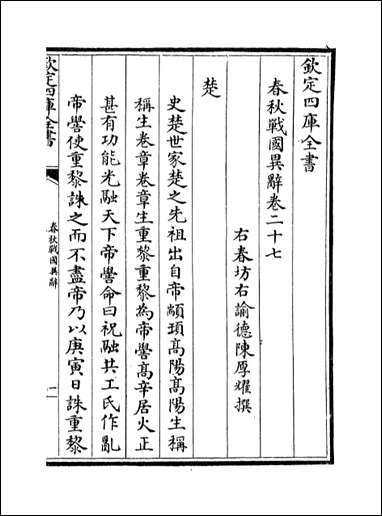 欽定四庫全書
春秋戰國異辭卷二十七
右春坊右諭德陳厚耀撰
楚
史楚世家楚之先祖出自帝顓頊高陽高陽生稱
稱生卷章卷章生重黎重黎為帝嚳高辛居火正
甚有功能光融天下帝嚳命曰祝融共工氏作亂
帝嚳使重黎誅之而不盡帝乃以庚寅日誅重黎
欽定四庫全書
春秋戰國異辭